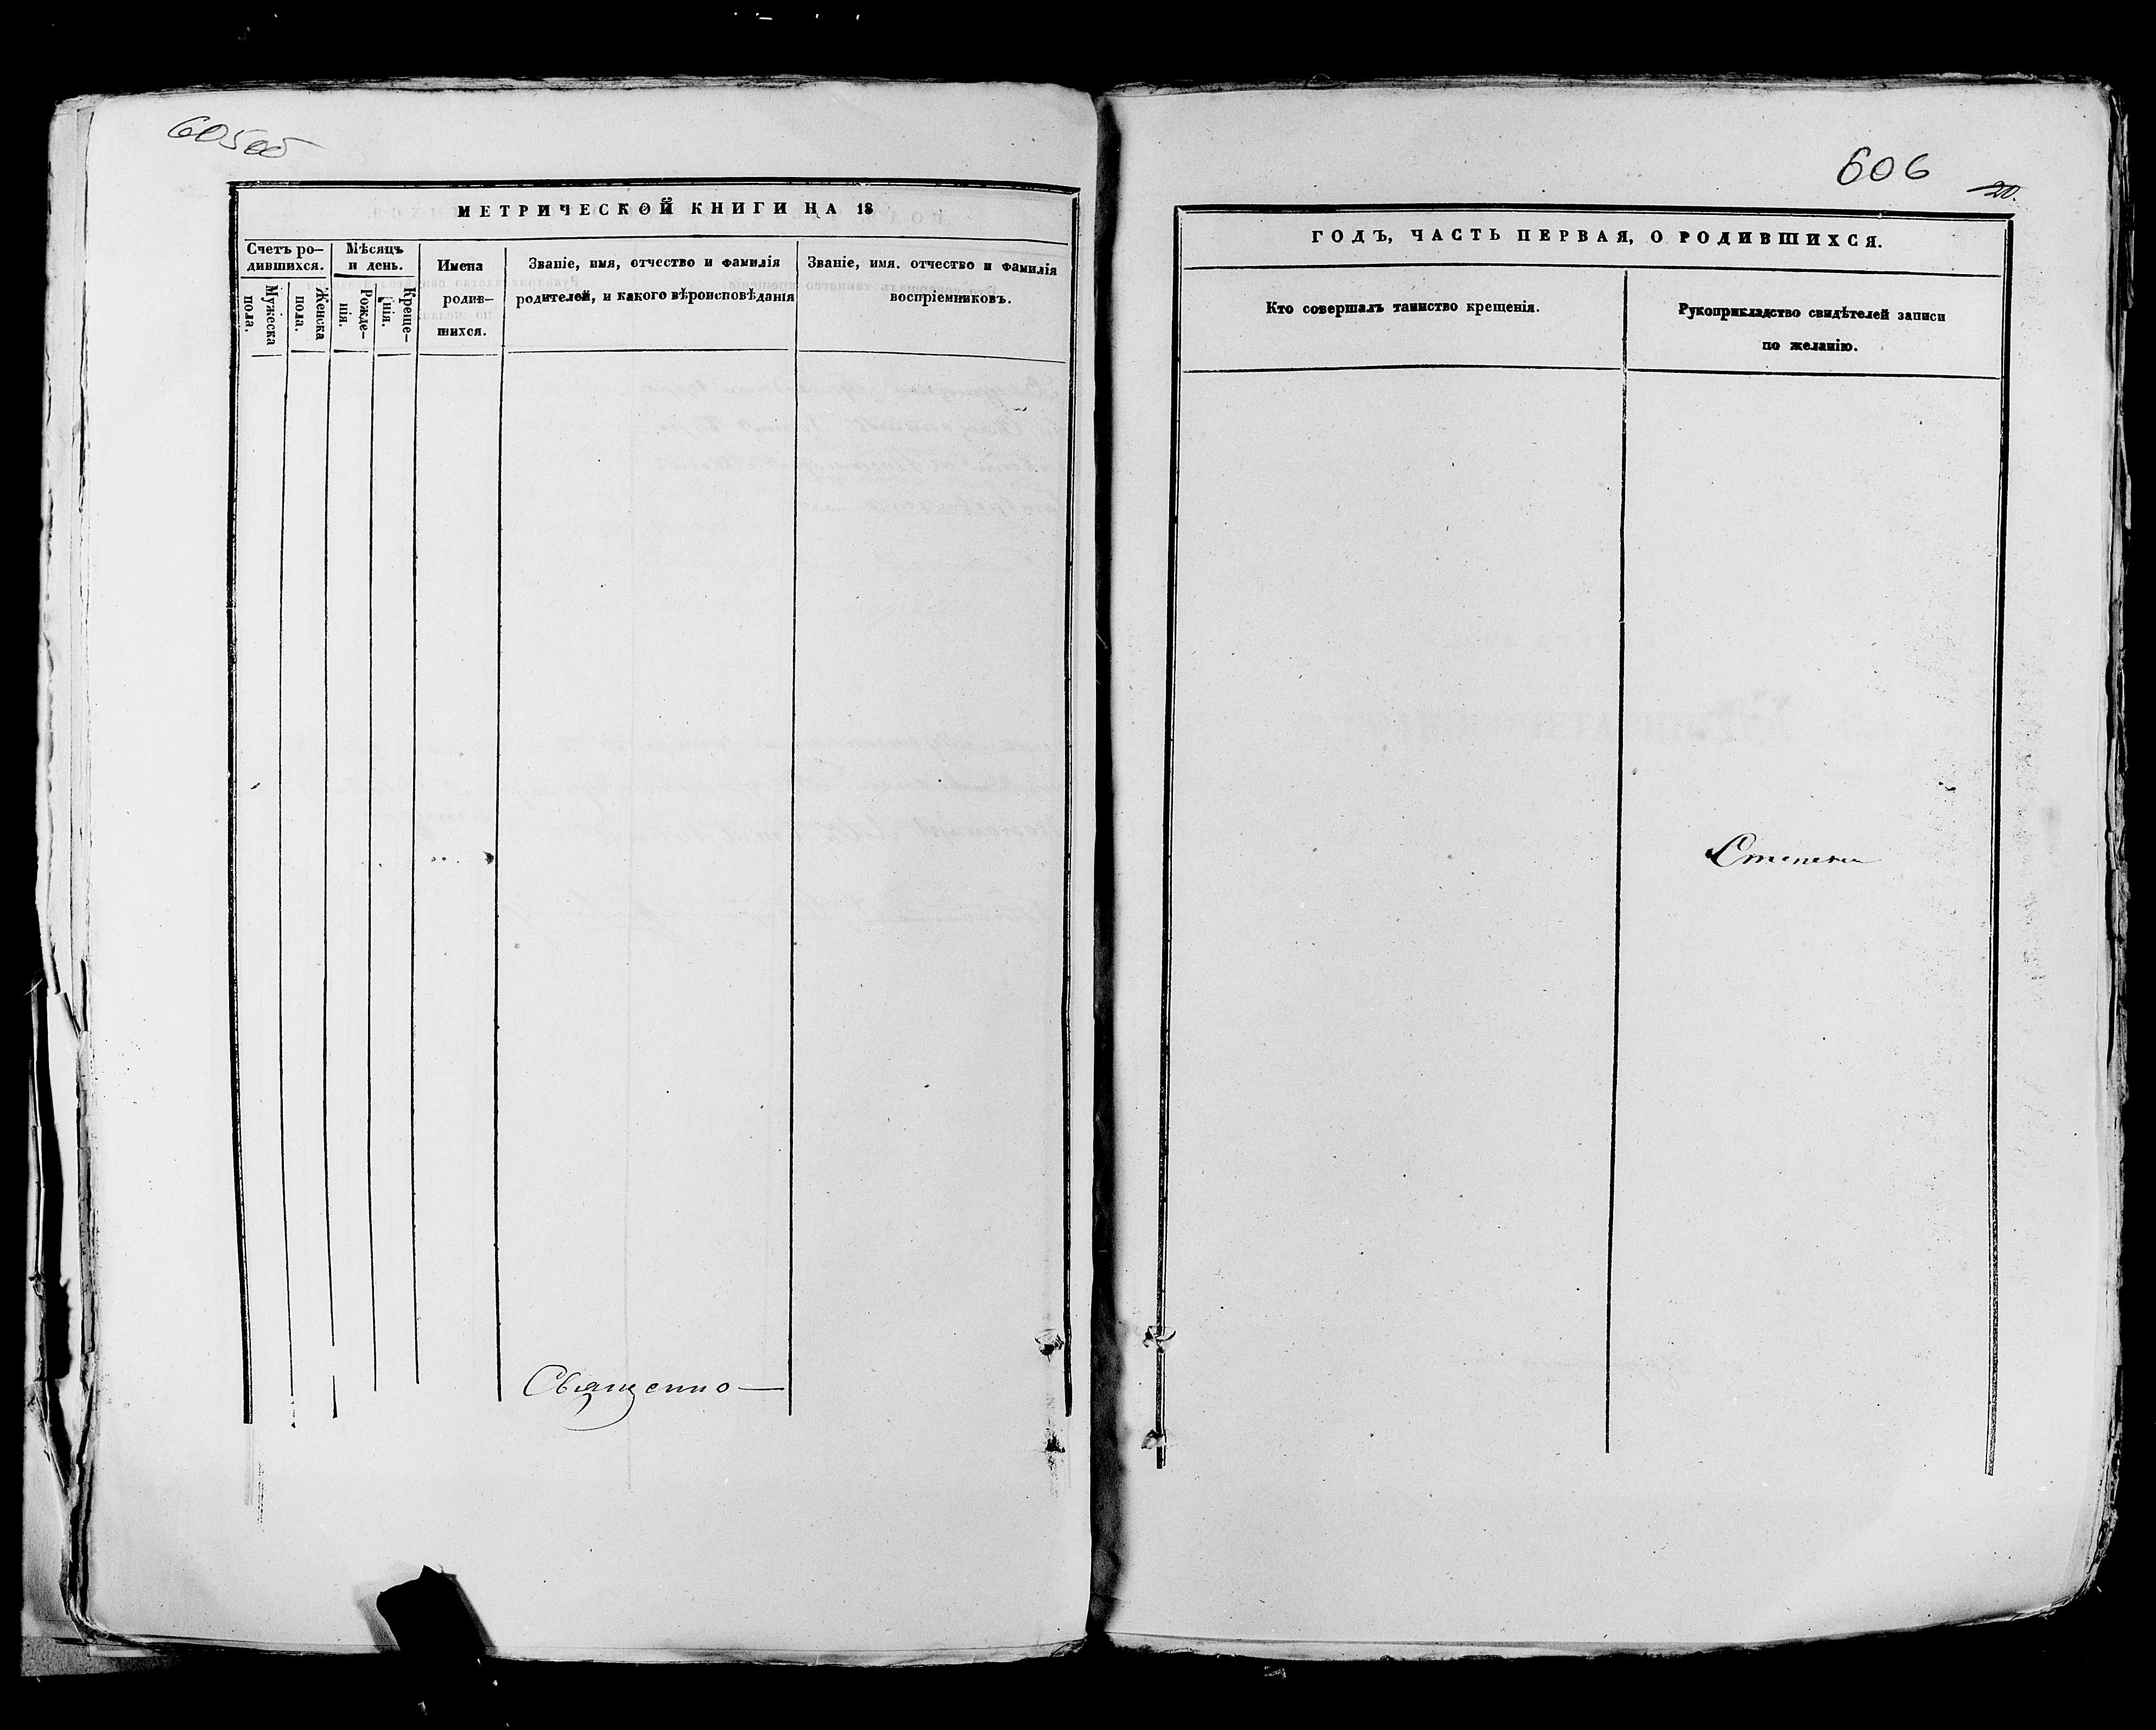 605об
МЕТРИЧЕСКОЙ КНИГИ НА 18
Счетъ ро-
дившихся.
Мѣсяцъ
и день.
Мужеска
пола.
Женска
пола.
Рожде-
нія.
Креще-
нія.
Имена
родив-
шихся.
Званіе, имя, отчество и фамилія
родителей, и какого вѣроисповѣданія
Званіе, имя. отчество и фамилія
воспріемниковъ.
Священно—
606
20.
ГОДЪ, ЧАСТЬ ПЕРВАЯ, О РОДИВШИХСЯ.
Кто совершалъ таинство крещенія.
Рукоприкладство свидѣтелей записи
по желанію.